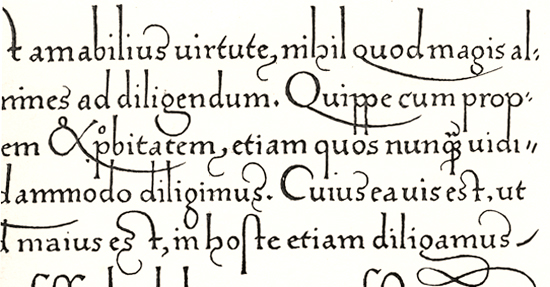 t amabilius uirtute, nihil quod magis al-
mines ad diligendum. Quippe cum prop-
em & p̊bitatem, etiam quos nunq̃ uidi"
dammodo diligimus. Cuius ea uis est, ut
t maius est, in hoste etiam diligamus